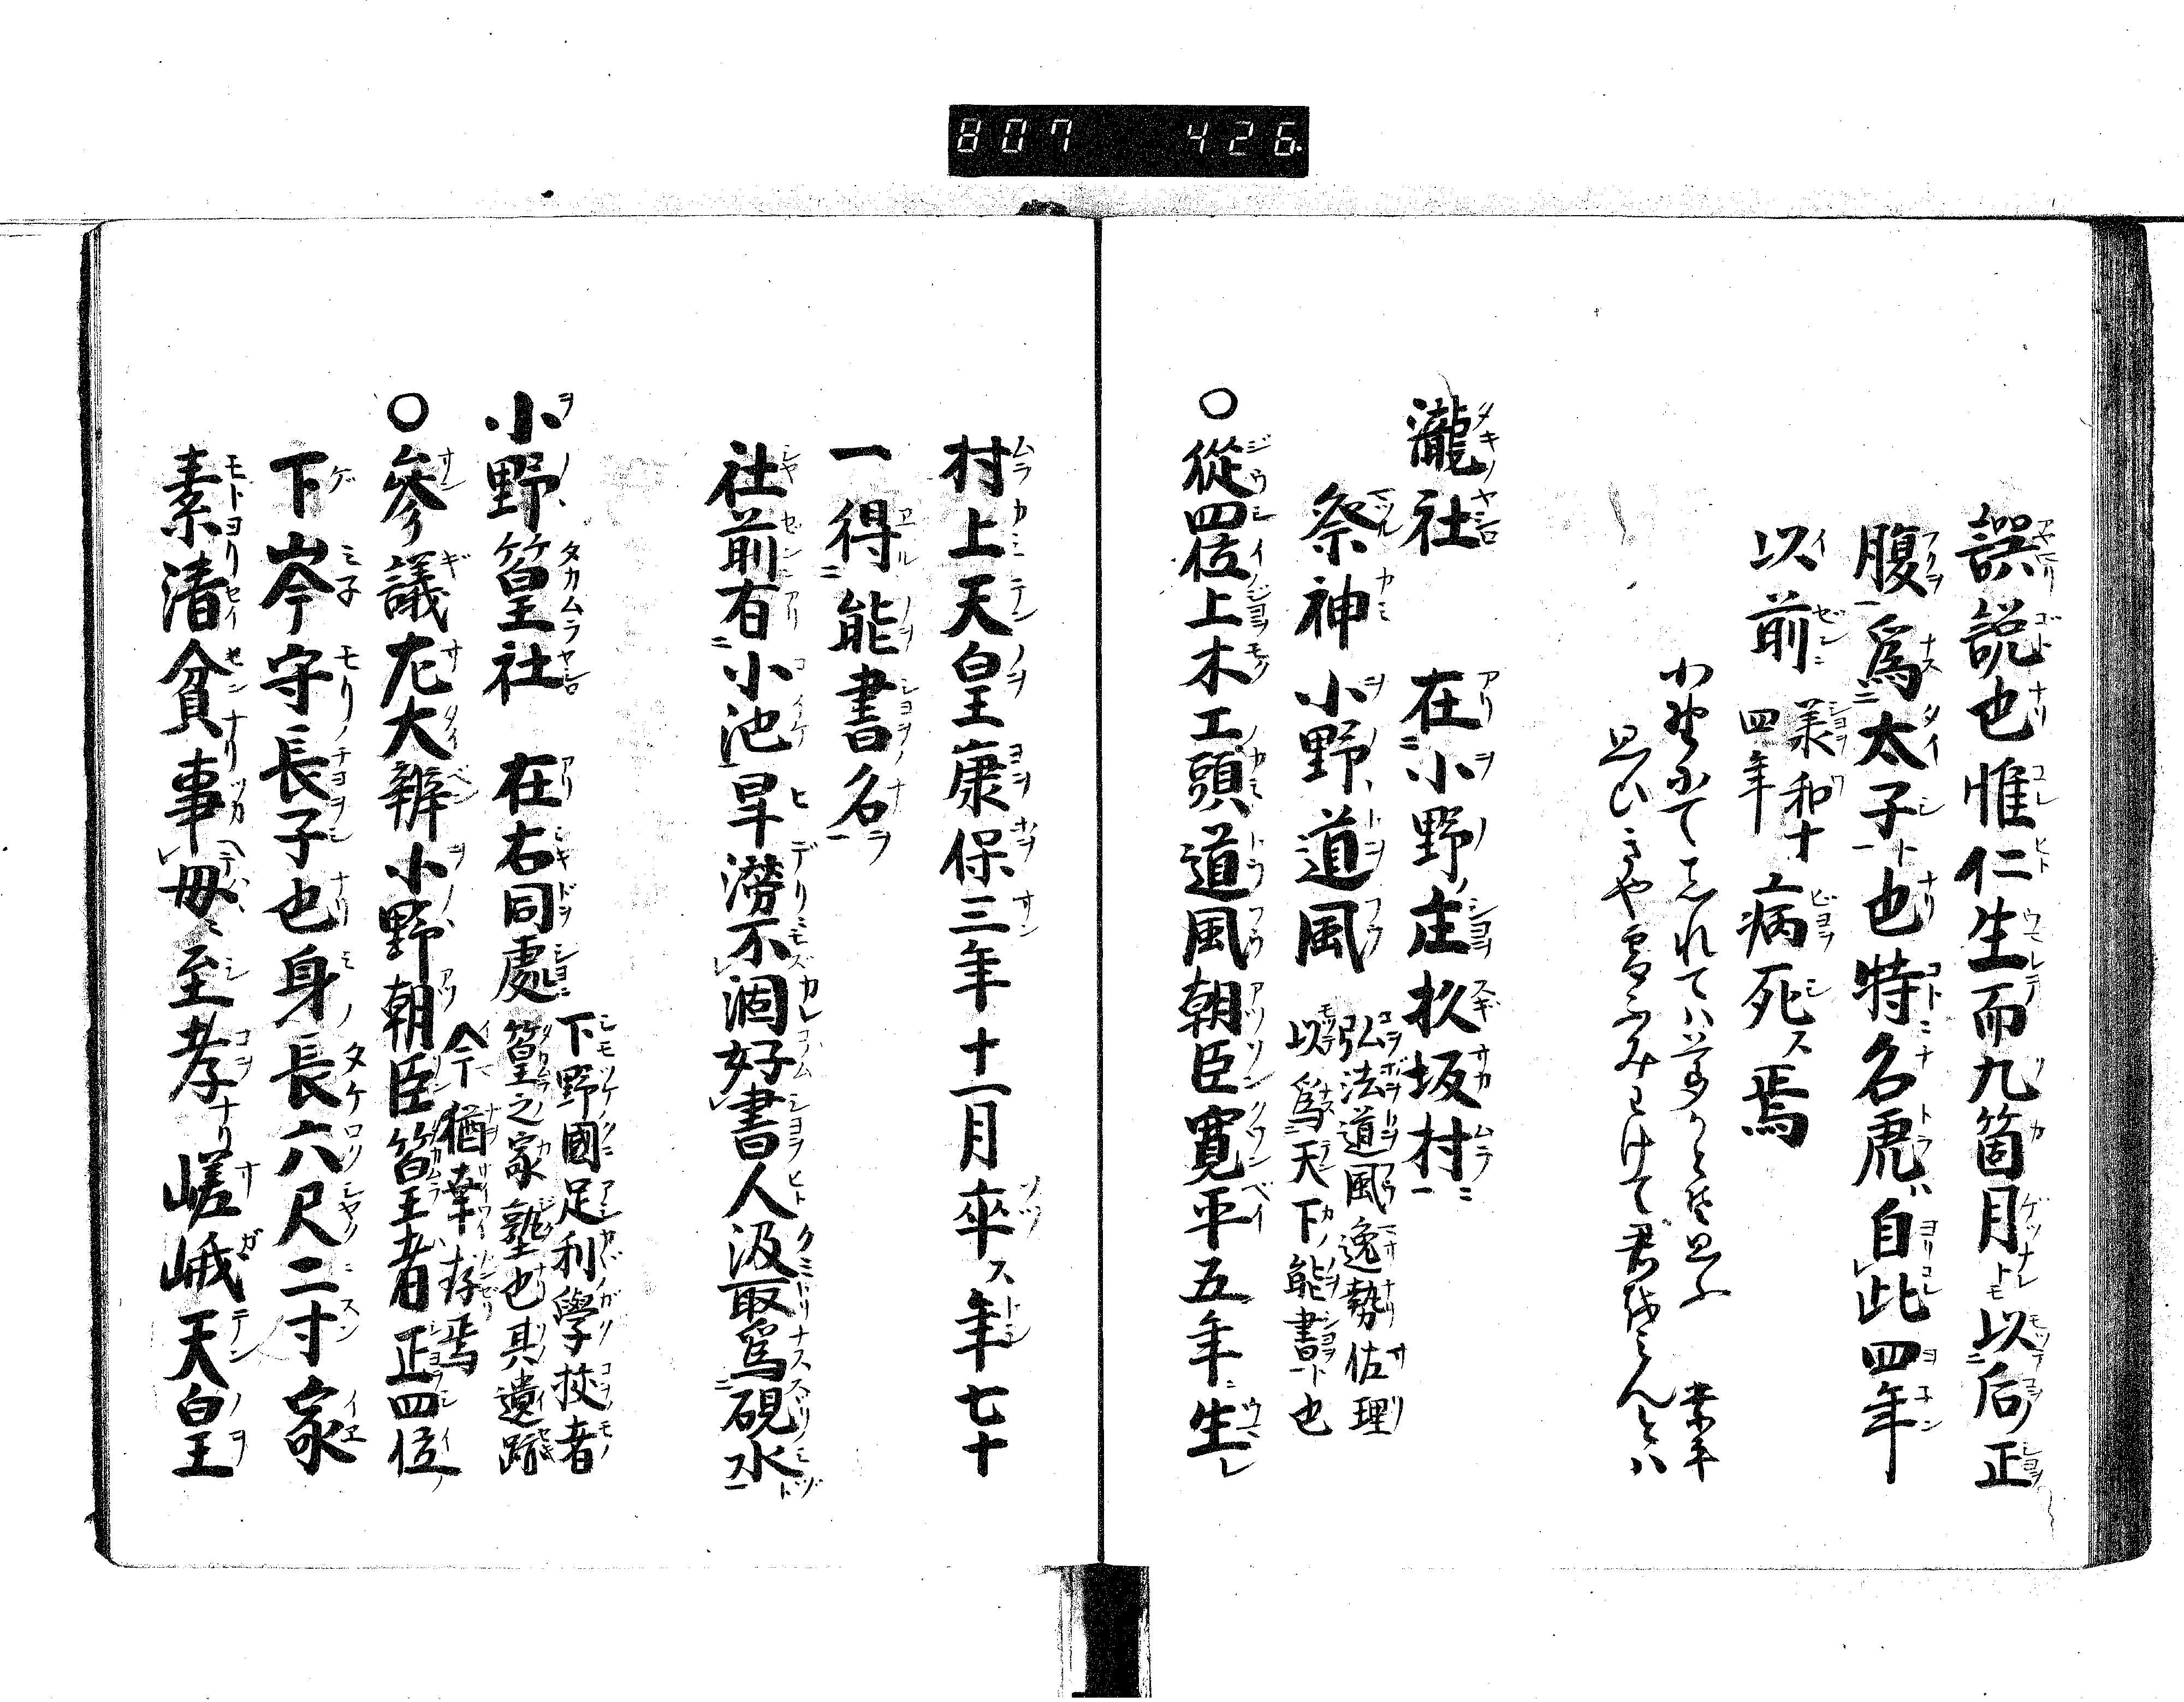 807 426.
誤説也惟仁生而九箇月以后正
腹爲太子也特名虎自此四年
以前承和十四年病死ス焉
わすれては夢かとぞ思ふ 業平
思ひきや雪ふみわけて君をみんとハ
瀧社 在小野庄杦坂村
祭神小野道風 弘法道風逸勢佐理
以爲天下能書也
〇從四位上木工頭道風朝臣寛平五年生
村上天皇康保三年十一月卒ス年七十
一得能書名
社前有小池旱澇不涸好書人汲取爲硯水
小野篁社 在右同處 下野國足利學挍者
篁之家塾也其遺跡
今猶幸存焉
〇參議左大辨小野朝臣篁者正四位
下岑守長子也身長六尺二寸家
素清貧事母至孝ナリ嵯峨天皇